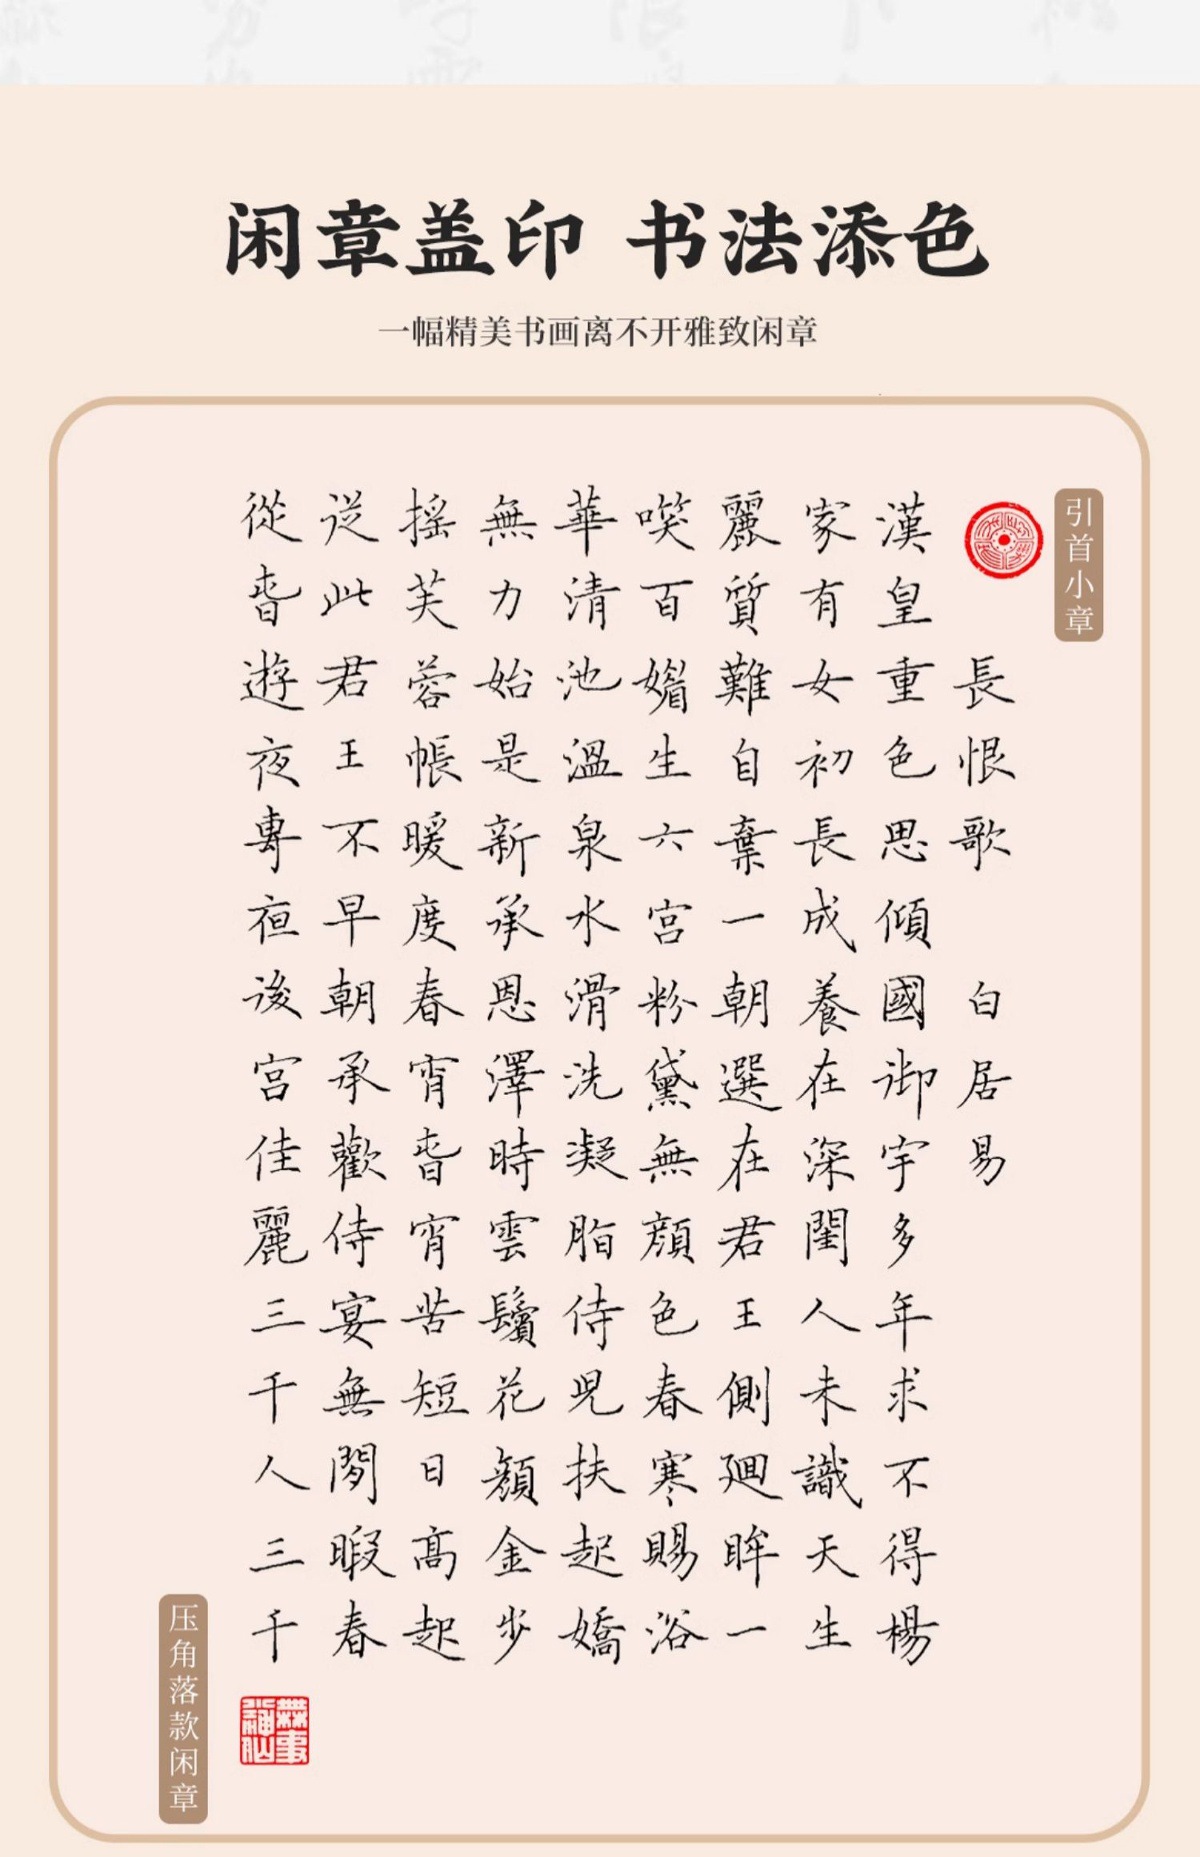 闲章盖印 书法添色
一幅精美书画离不开雅致闲章
引首小章
長恨歌 白居易
漢皇重色思傾國御宇多年求不得楊
家有女初長成養在深閨人未識天生
麗質難自棄一朝選在君王側廻眸一
㗛百媚生六宮粉黛無顔色春寒賜浴
華清池溫泉水滑洗凝脂侍児扶起嬌
無力始是新承恩澤時雲鬢花顔金步
摇芙蓉帳暖度春宵春宵苦短日高起
従此君王不早朝承歡侍宴無閒暇春
從春遊夜專夜後宮佳麗三千人三千
压角落款闲章
無事神仙